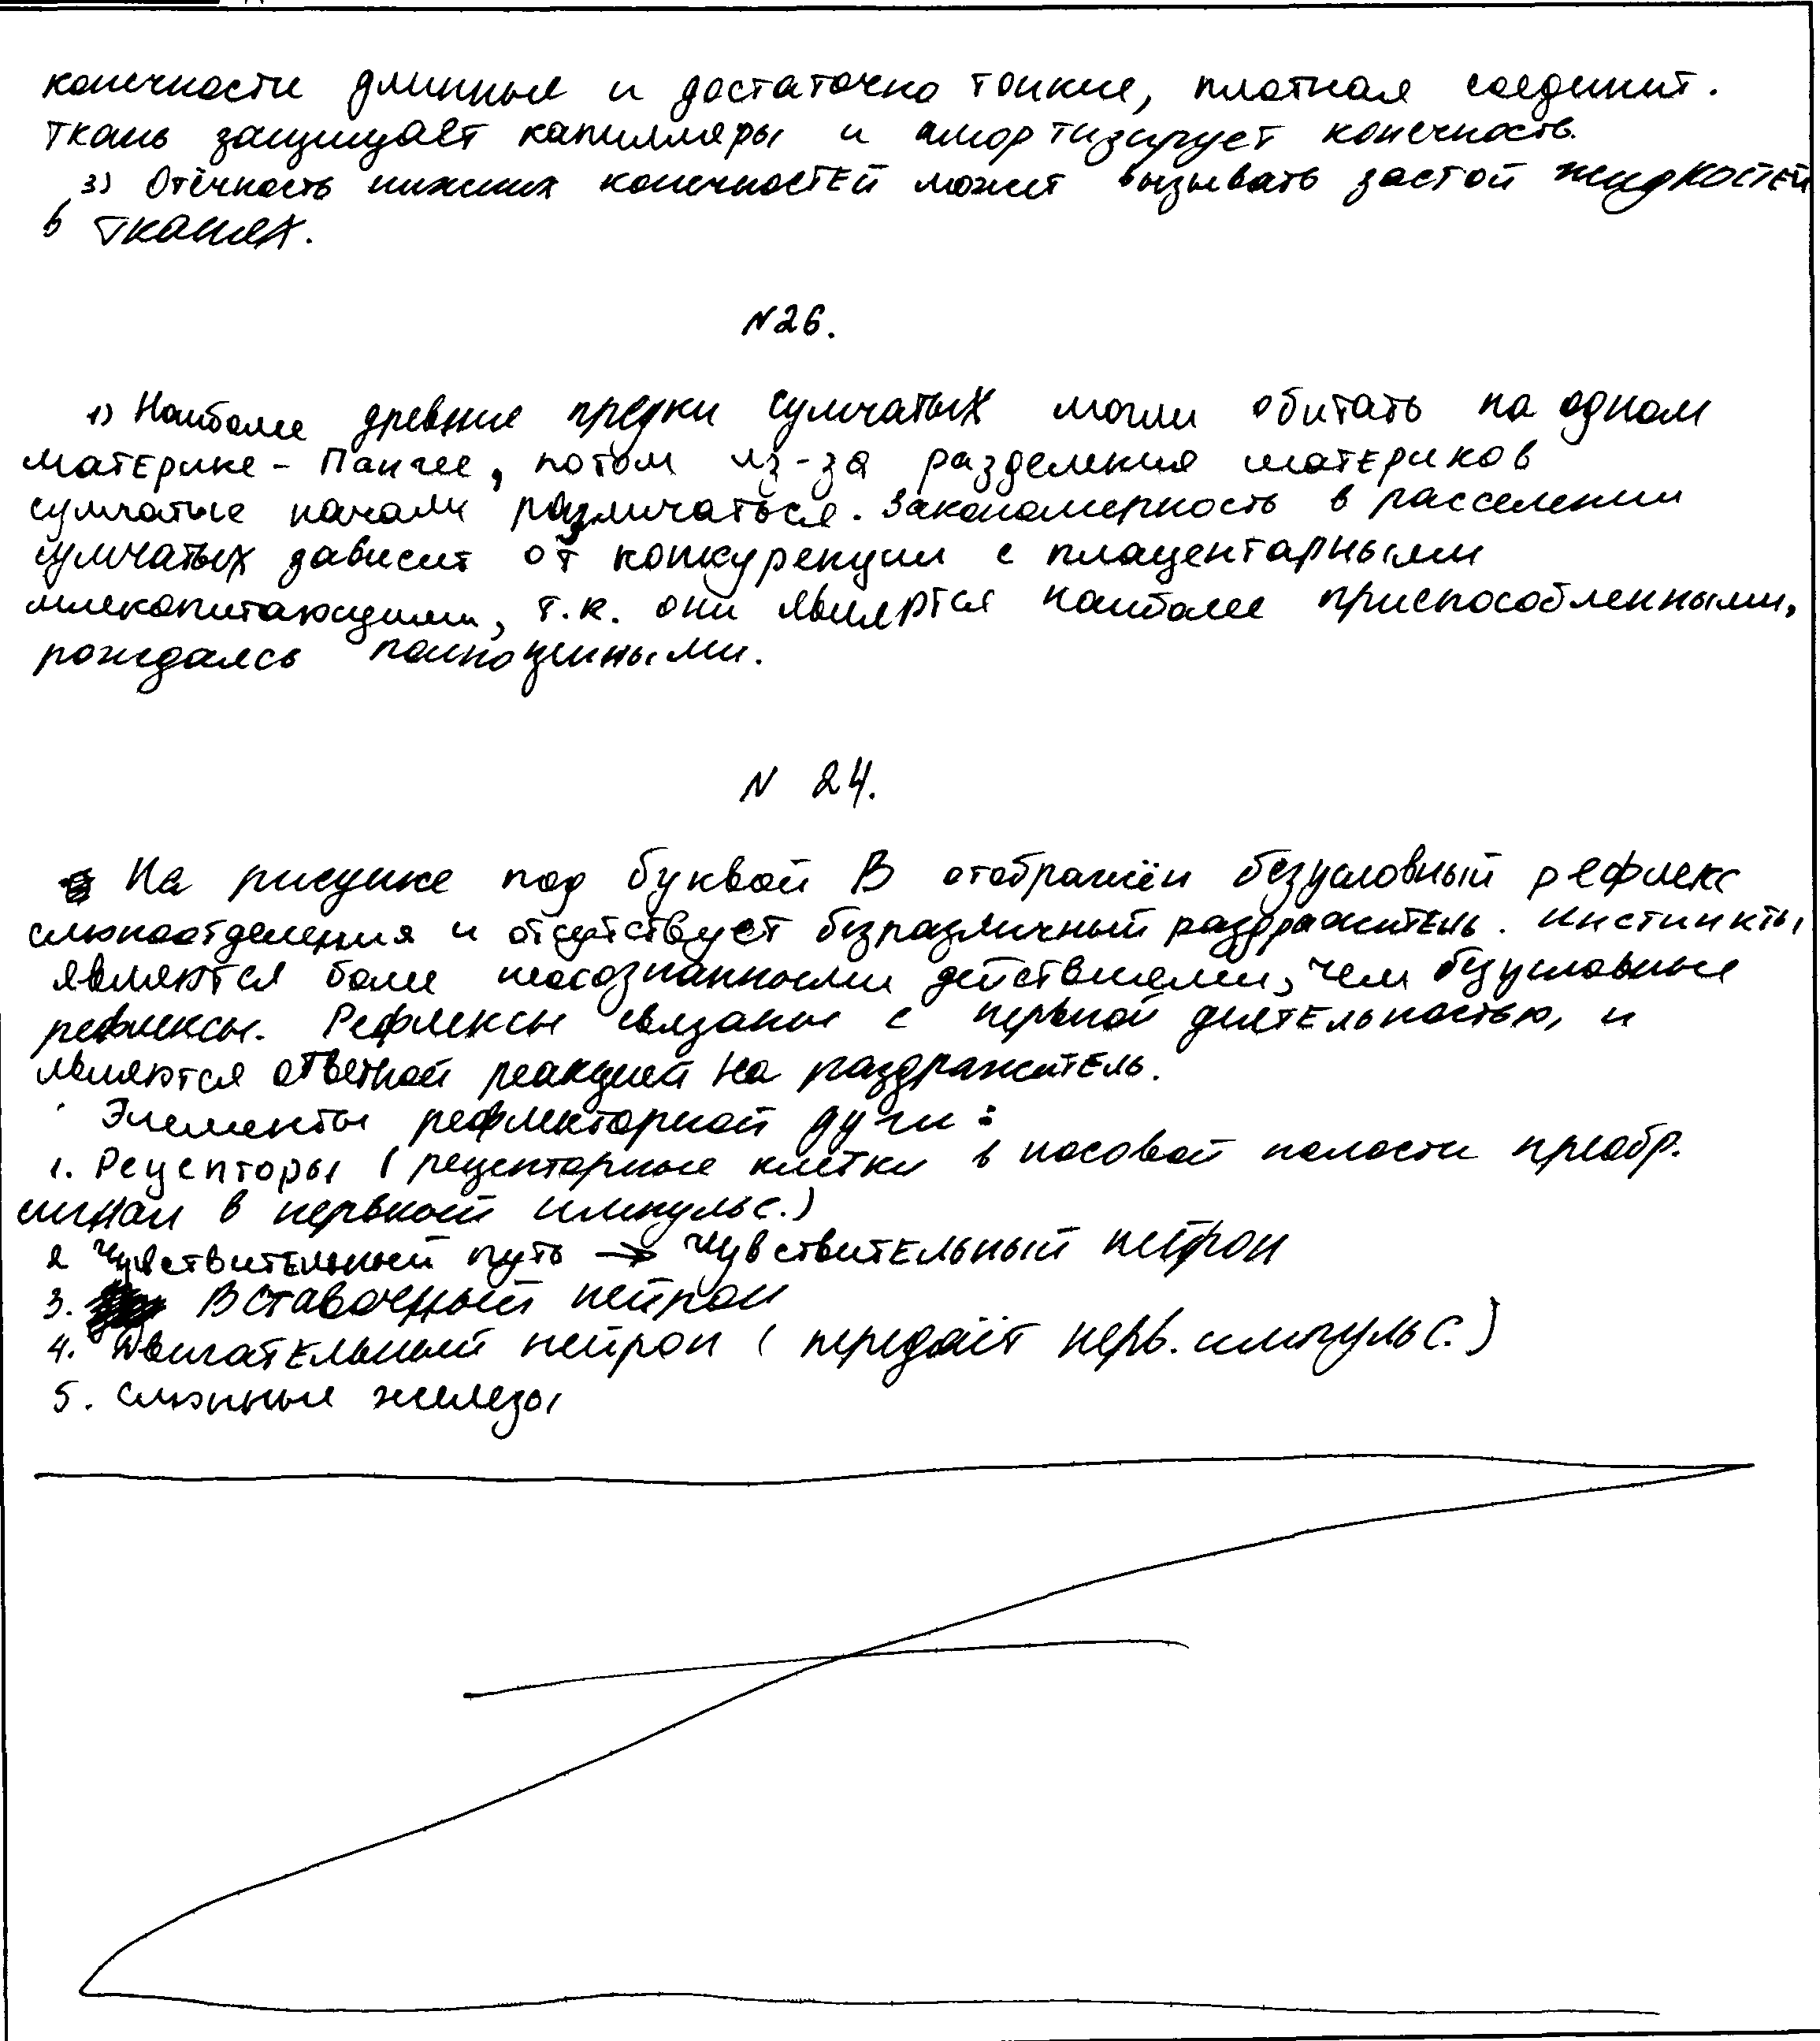 конечности длинные и достаточно тонкие, плотная соединит.
ткань защищает капилляры и амортизирует конечность.
3) Отёчность нижних конечностей может вызывать застой жидкостей
в тканях.
N26.
1) Наиболее древние предки сумчатых могли обитать на одном
материке - Пангее, потом из-за разделения материков
сумчатые начали различаться. Закономерность в расселении
сумчатых зависит от конкуренции с плацентарными
млекопитающими, т.к. они являются наиболее приспособленными,
рождаясь полноценными.
N 24.
На рисунке под буквой В отображён безусловный рефлекс
слюноотделения и отсутствует безразличный раздражитель. Инстинкты
являются более неосознанными действиями, чем безусловные
рефлексы. Рефлексы связаны с нервной деятельностью, и
являются ответной реакцией на раздражитель.
Элементы рефлекторной дуги:
1. Рецепторы (рецепторные клетки в носовой полости преобр.
сигнал в нервный импульс.)
2 Чувствительный путь → Чувствительный нейрон
3. Вставочный нейрон
4. Двигательный нейрон (передаёт нерв. импульс.)
5. Слюнные железы